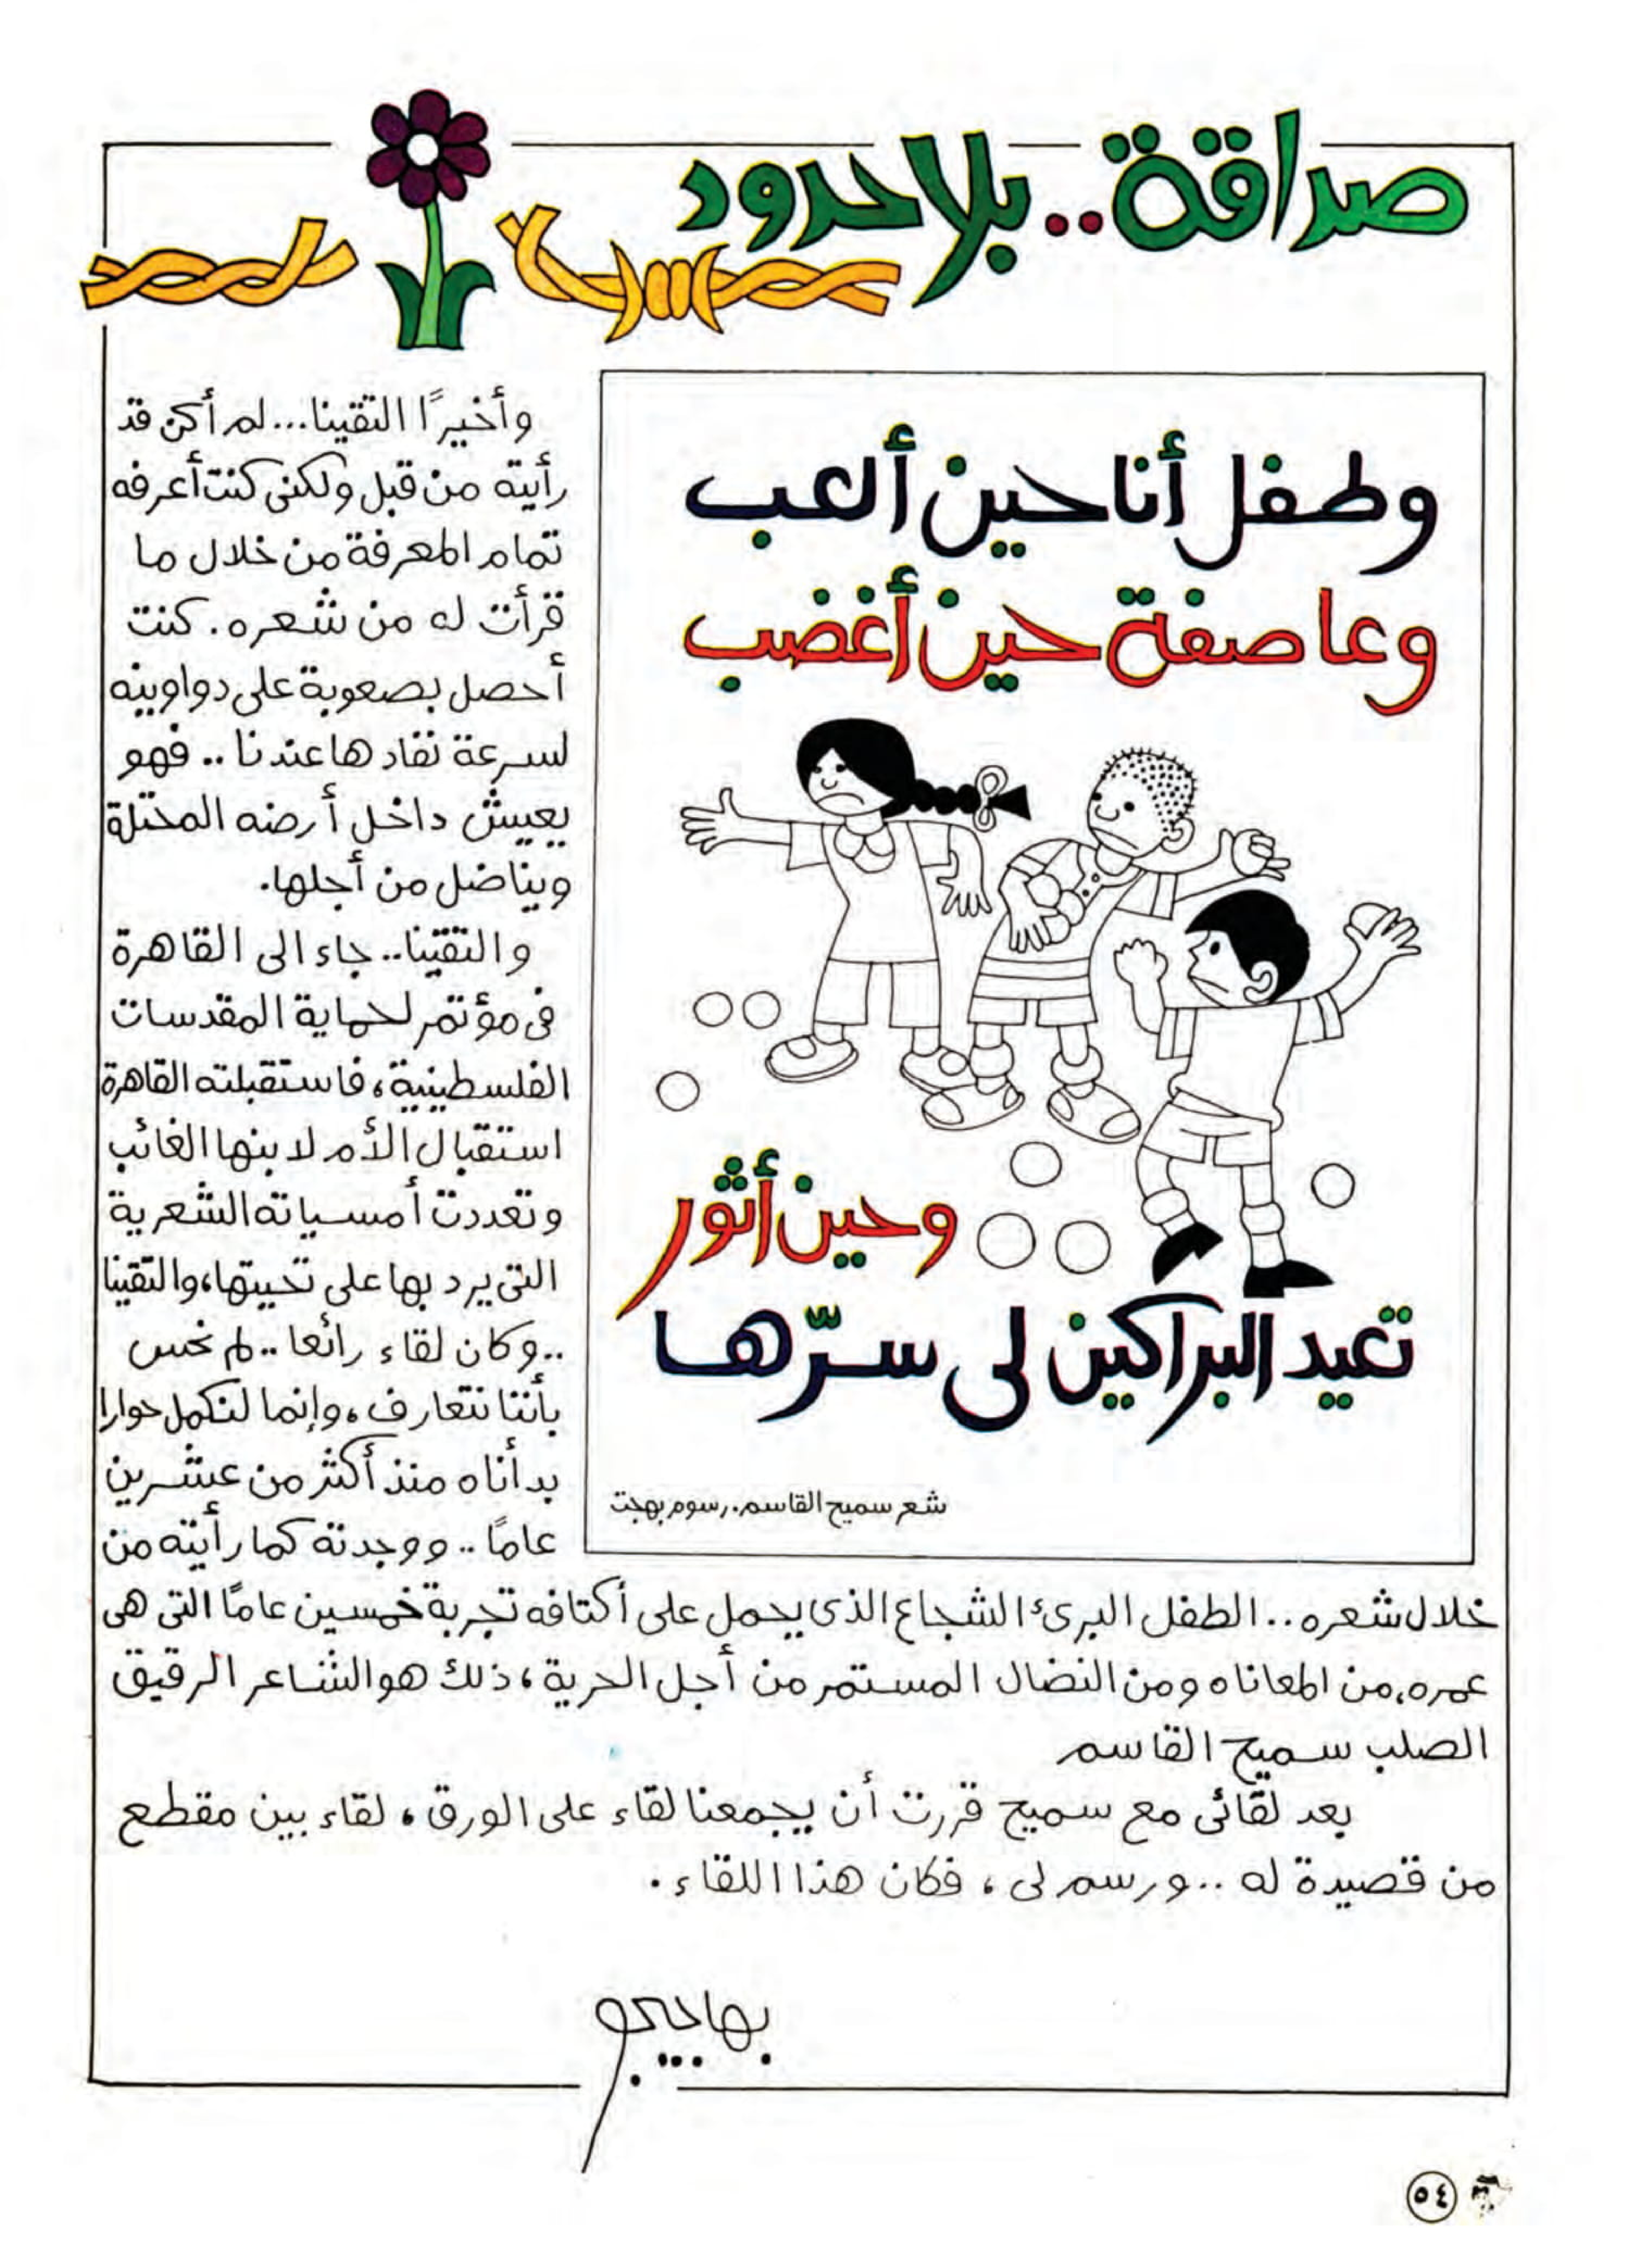 صداقة..بلا حدود
وطفل أنا حين ألعب
وعاصفة حين أغضب
وحين أثور
تعيد البراكين لى سرّها
شعر سميح القاسم. رسوم بهجت
وأخيرًا التقينا... لم أكن قد
رأيته من قبل ولكنى كنت أعرفه
تمام المعرفة من خلال ما
قرأت له من شعره. كنت
أحصل بصعوبة على دواوينه
لسرعة نفادها عندنا .. فهو
يعيش داخل أرضه المحتلة
ويناضل من أجلها.
والتقينا.. جاء الى القاهرة
فى مؤتمر لحماية المقدسات
الفلسطينية، فاستقبلته القاهرة
استقبال الأم لابنها الغائب
وتعددت أمسياته الشعرية
التى يرد بها على تحيتها، والتقينا
..وكان لقاء رائعا .. لم نحس
بأننا نتعارف، وإنما لنكمل حوارا
بدأناه منذ أكثر من عشرين
عامًا .. ووجدته كما رأيته من
خلال شعره .. الطفل البرئ الشجاع الذى يحمل على أكتافه تجربة خمسين عامًا التى هى
عمره، من المعاناه ومن النضال المستمر من أجل الحرية، ذلك هو الشاعر الرقيق
الصلب سميح القاسم
بعد لقائى مع سميح قررت أن يجمعنا لقاء على الورق، لقاء بين مقطع
من قصيدة له .. ورسم لى، فكان هذا اللقاء.
٥٤